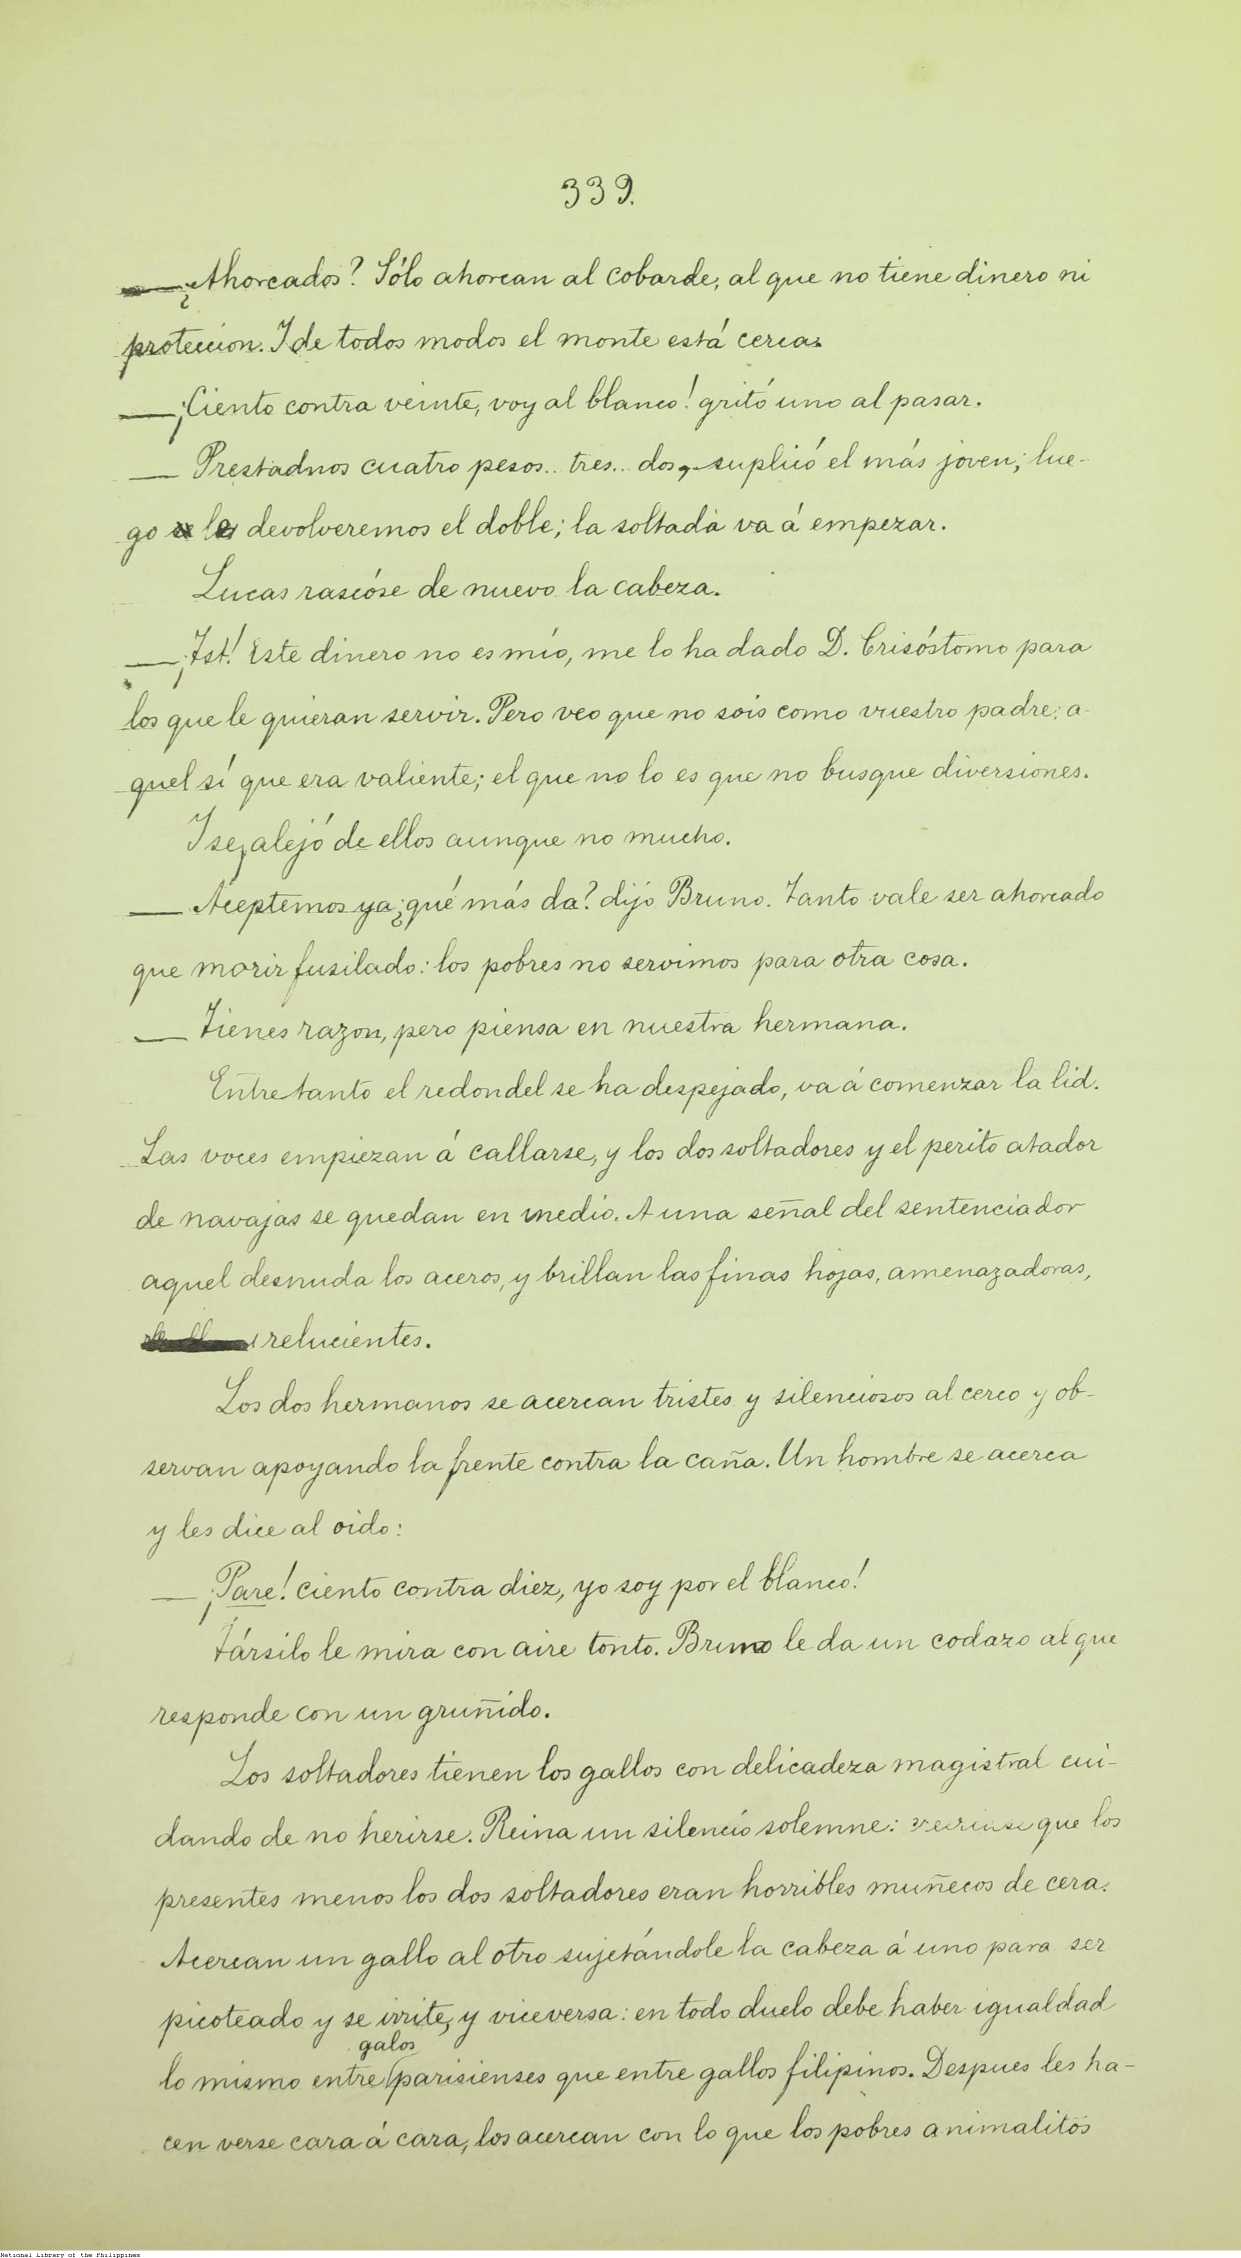 339.
— ¿Ahorcados? Sólo ahorcan al cobarde, al que no tiene dinero ni
proteccion. Y de todos modos el monte está cerca.
— ¡Ciento contra veinte, voy al blanco! gritó uno al pasar.
— Prestadnos cuatro pesos.. tres.. dos, suplicó el más joven; lue-
go les devolveremos el doble; la soltada va á empezar.
Lucas rascóse de nuevo la cabeza.
— ¡Tst! Este dinero no es mío, me lo ha dado D. Crisóstomo para
los que le quieran servir. Pero veo que no sois como vuestro padre; a-
quel sí que era valiente; el que no lo es que no busque diversiones.
Y se alejó de ellos aunque no mucho.
— Aceptemos ya ¿qué más da? dijo Bruno. Tanto vale ser ahorcado
que morir fusilado: los pobres no servimos para otra cosa.
— Tienes razon, pero piensa en nuestra hermana.
Entretanto el redondel se ha despejado, va á comenzar la lid.
Las voces empiezan á callarse, y los dos soltadores y el perito atador
de navajas se quedan en medio. A una señal del sentenciador
aquel desnuda los aceros, y brillan las finas hojas, amenazadoras,
relucientes.
Los dos hermanos se acercan tristes y silenciosos al cerco y ob-
servan apoyando la frente contra la caña. Un hombre se acerca
y les dice al oido:
— ¡Pare! ciento contra diez, yo soy por el blanco!
Társilo le mira con aire tonto. Bruno le da un codazo al que
responde con un gruñido.
Los soltadores tienen los gallos con delicadeza magistral cui-
dando de no herirse. Reina un silencio solemne: que los
presentes menos los dos soltadores eran horribles muñecos de cera.
Acercan un gallo al otro sujetándole la cabeza á uno para ser
picoteado y se irrite, y viceversa: en todo duelo debe haber igualdad
lo mismo entre galos parisienses que entre gallos filipinos. Despues les ha-
cen verse cara á cara, los acercan con lo que los pobres animalitos
National Library of the Philippines